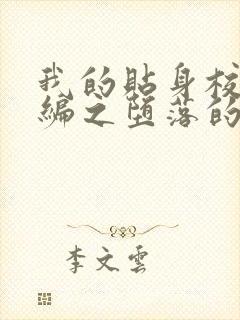 我的貼身校
編之墮落的
李文雲